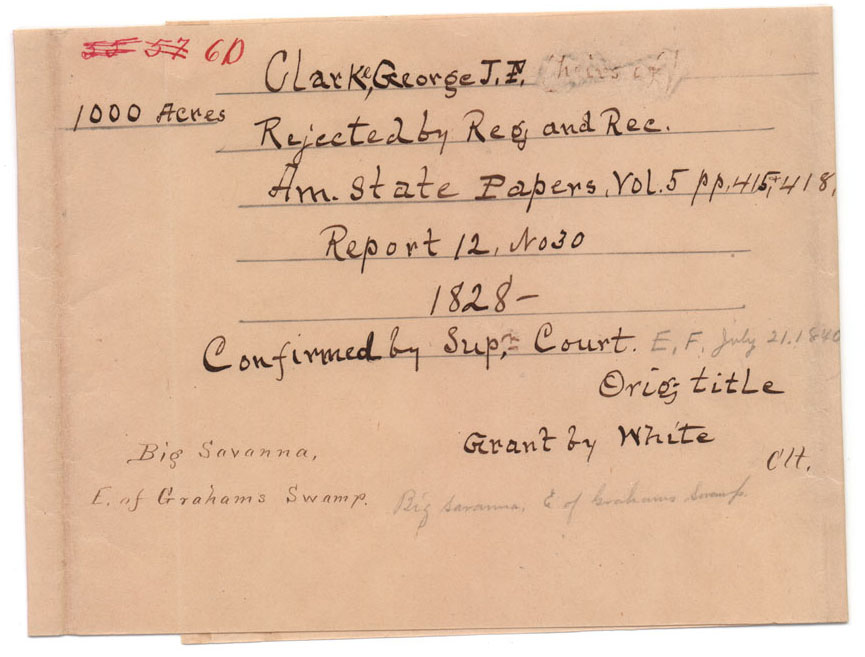 35 57 6D
Clarke, George J. F. (heirs of)
1000 Acres
Rejected by Reg and Rec.
Am. State Papers, Vol. 5 pp. 415, + 418,
Report 12, No 30
1828 –
Confirmed by Sup,r Court. E. F. July 21. 1840
Orig; title
Grant by White
Ctt.
Big Savanna,
E. of Grahams Swamp.
Big Savanna, E of Grahams Swamp.